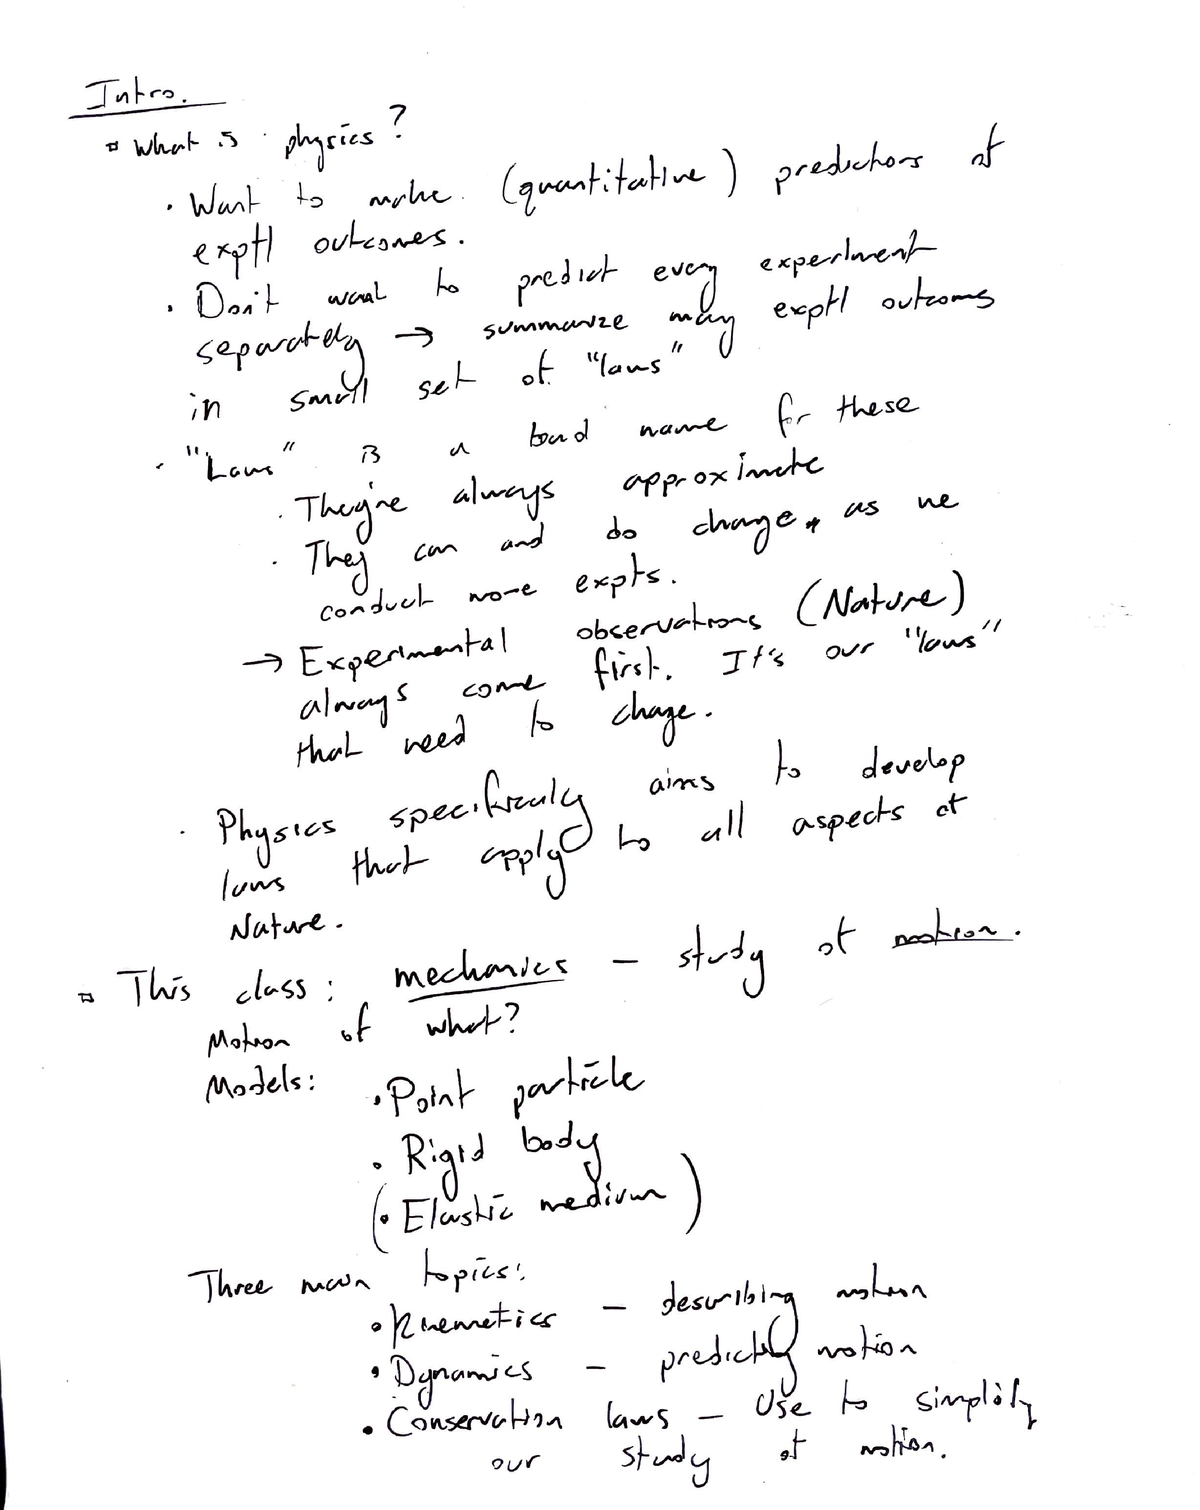 Intro.
▫ What is physics?
· Want to make (quantitative) predictions of
exptl outcomes.
· Don't want to predict every experiment
separately → summarize many exptl outcomes
in small set of "laws"
· "Laws" is a bad name for these
· They're always approximate
· They can and do change, as we
conduct more expts.
→ Experimental observations (Nature)
always come first. It's our "laws"
that need to change.
· Physics specifically aims to develop
laws that apply to all aspects of
Nature.
▫ This class: mechanics – study of motion.
Motion of what?
Models: • Point particle
• Rigid body
(• Elastic medium)
Three main topics:
• Kinematics – describing motion
• Dynamics – predicting motion
• Conservation laws – Use to simplify
our study of motion.